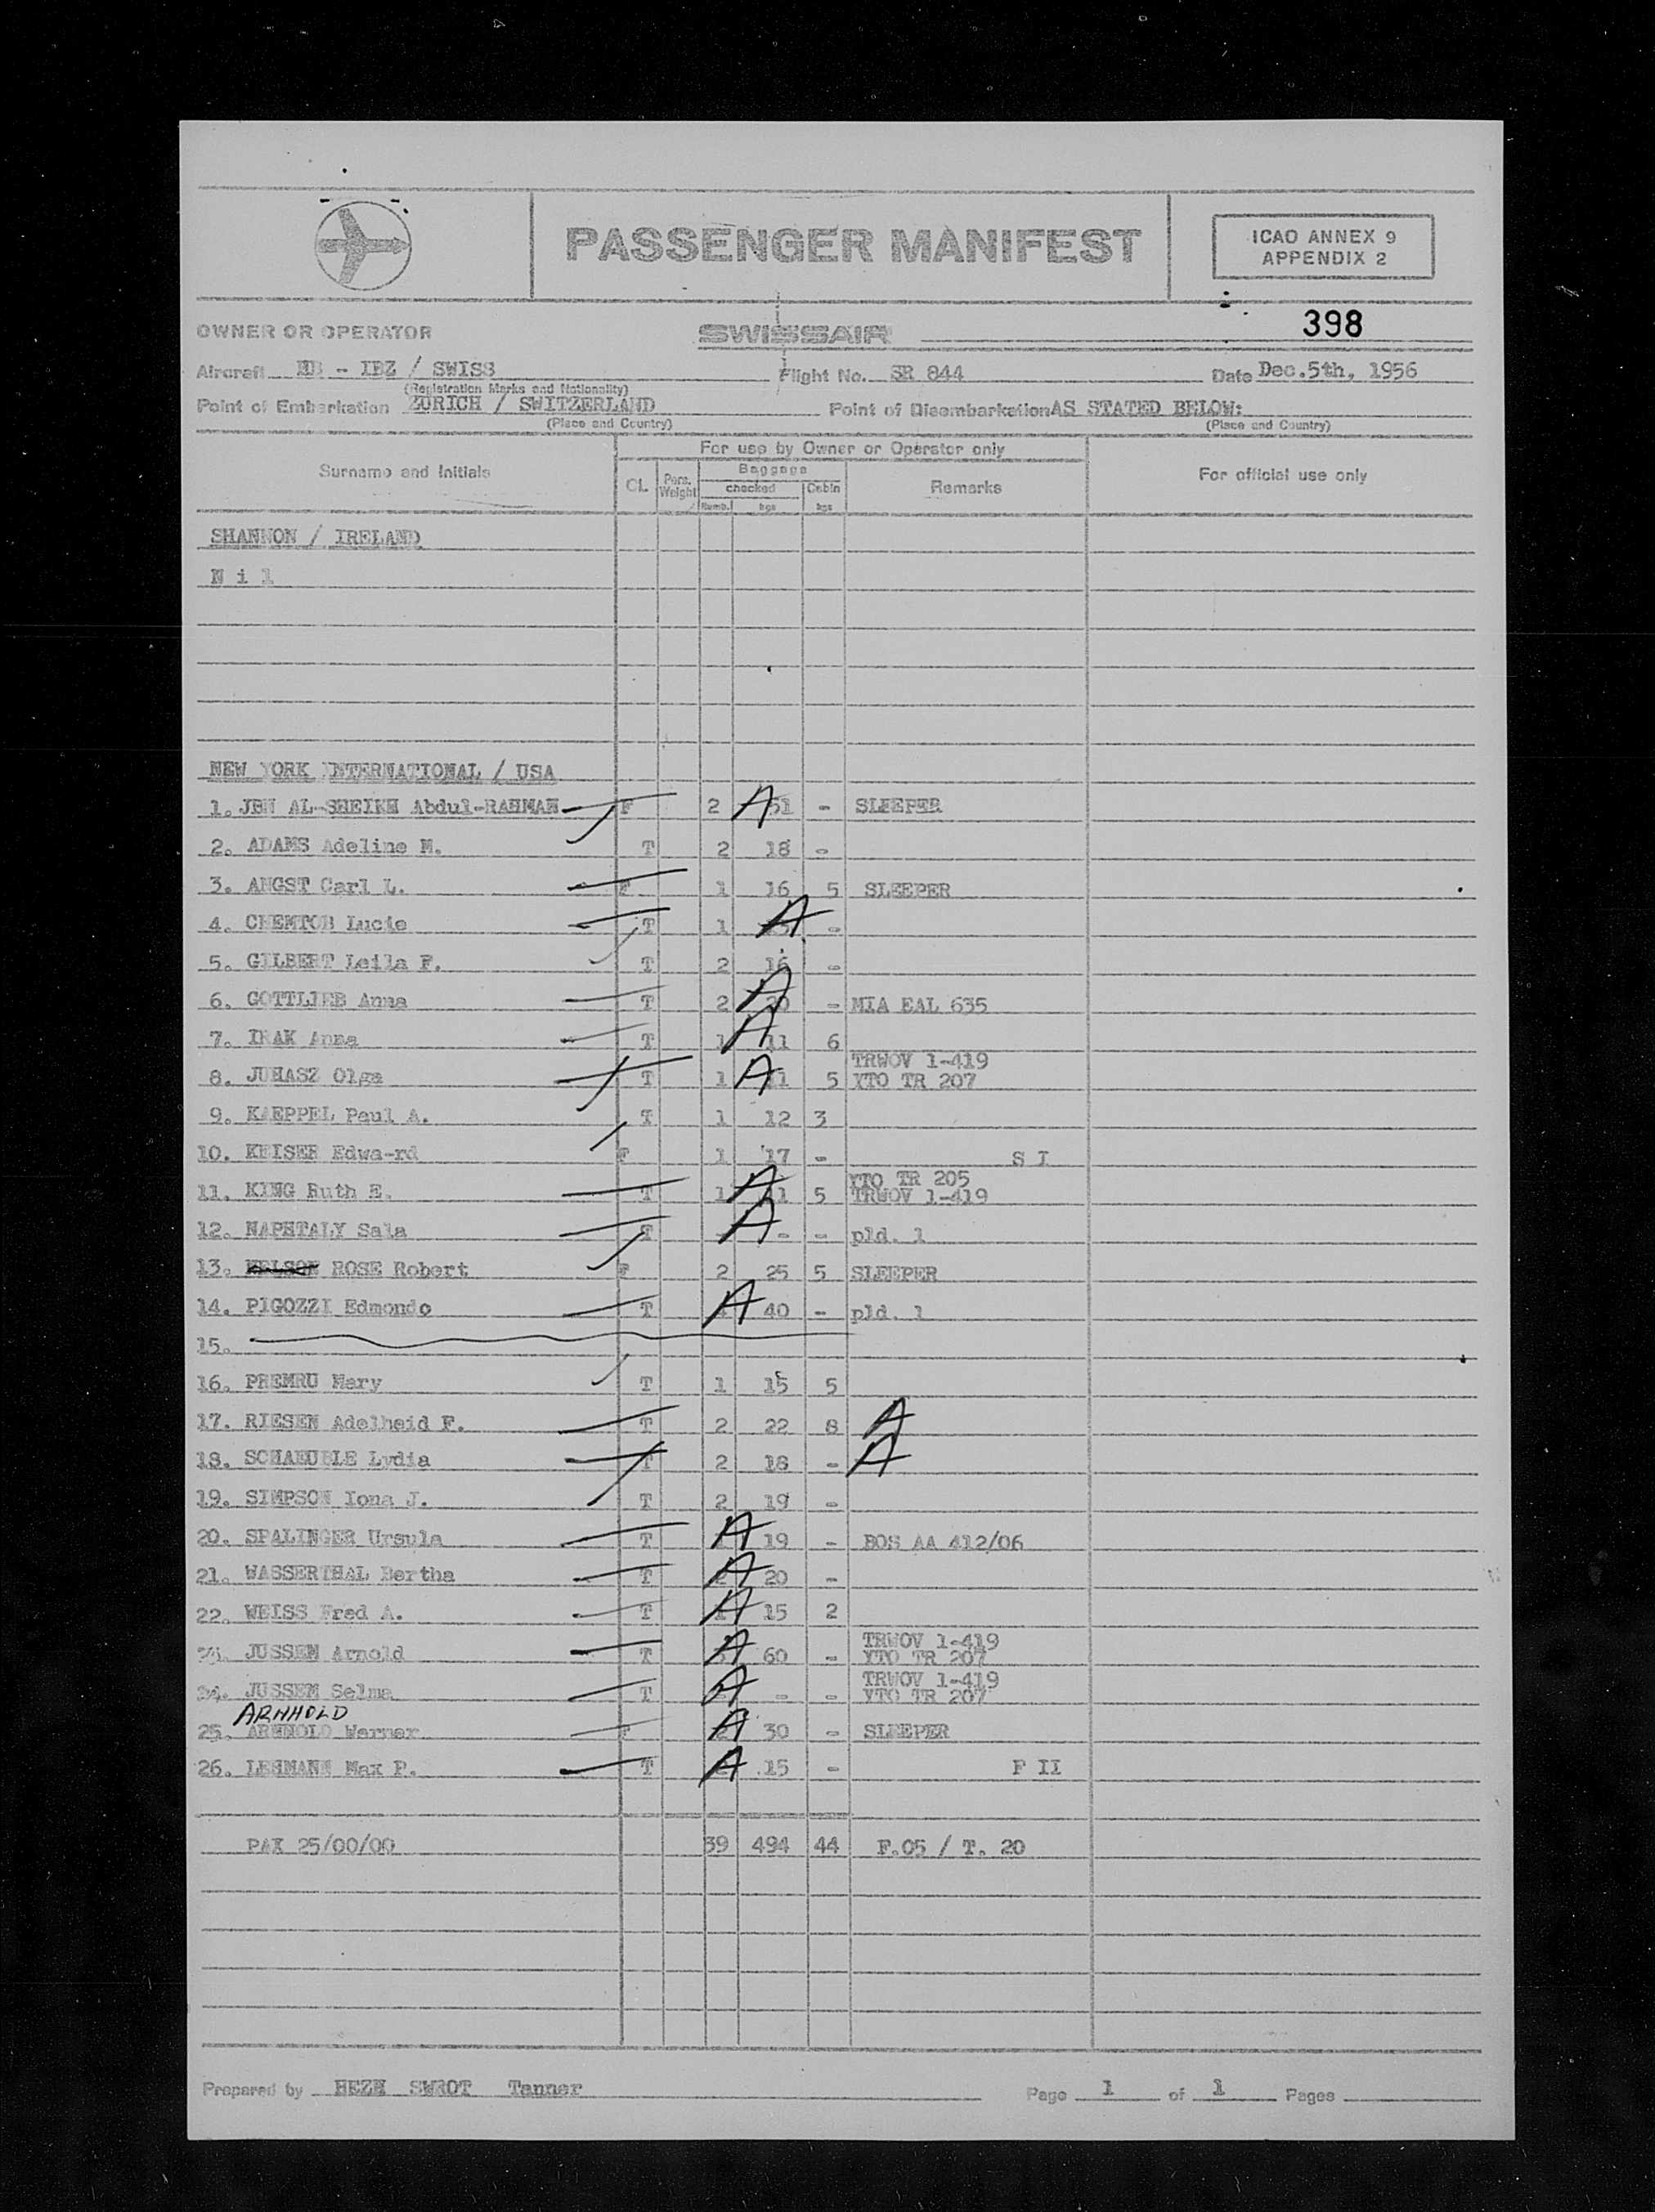 PASSENGER MANIFEST
ICAO ANNEX 9
APPENDIX 2
398
OWNER OR OPERATOR SWISSAIR
Aircraft HB - IBZ / SWISS Flight No. SR 844 Date Dec.5th, 1956
(Registration Marks and Nationality)
Point of Embarkation ZURICH / SWITZERLAND Point of Disembarkation AS STATED BELOW:
(Place and Country) (Place and Country)
For use by Owner or Operator only
Surname and Initials CL. Pers. Weight Baggage checked Numb. kgs Cabin kgs Remarks For official use only
SHANNON / IRELAND
N i l
NEW YORK INTERNATIONAL / USA
1. JBN AL-SHEIKH Abdul-RAHMAN F 2 A 51 - SLEEPER
2. ADAMS Adeline M. T 2 18 -
3. ANGST Carl L. F 1 16 5 SLEEPER
4. CHEMTOB Lucie T 1 A -
5. GILBERT Leila F. T 2 16 -
6. GOTTLIEB Anna T 2 A - MIA EAL 635
7. IRAK Anna T 1 A 11 6
TRWOV 1-419
8. JUHASZ Olga T 1 A 5 YTO TR 207
9. KAEPPEL Paul A. T 1 12 3
10. KEISER Edwa-rd F 1 17 - S I
YTO TR 205
11. KING Ruth E. T 1 A 5 TRWOV 1-419
12. NAPHTALY Sala T A - - pld. 1
13. NELSON ROSE Robert F 2 25 5 SLEEPER
14. PIGOZZI Edmondo T A 40 - pld. 1
15.
16. PREMRU Mary T 1 15 5
17. RIESEN Adelheid F. T 2 22 8 A
18. SCHAEUBLE Lydia T 2 18 - A
19. SIMPSON Iona J. T 2 19 -
20. SPALINGER Ursula T A 19 - BOS AA 412/06
21. WASSERTHAL Bertha T A 20 -
22. WEISS Fred A. T A 15 2
TRWOV 1-419
23. JUSSEM Arnold T A 60 - YTO TR 207
TRWOV 1-419
24. JUSSEM Selma T A - - YTO TR 207
ARNHOLD
25. Werner F A 30 - SLEEPER
26. LEHMANN Max P. T A 15 - F II
PAX 25/00/00 39 494 44 F.05 / T. 20
Prepared by HEZH SWROT Tanner Page 1 of 1 Pages